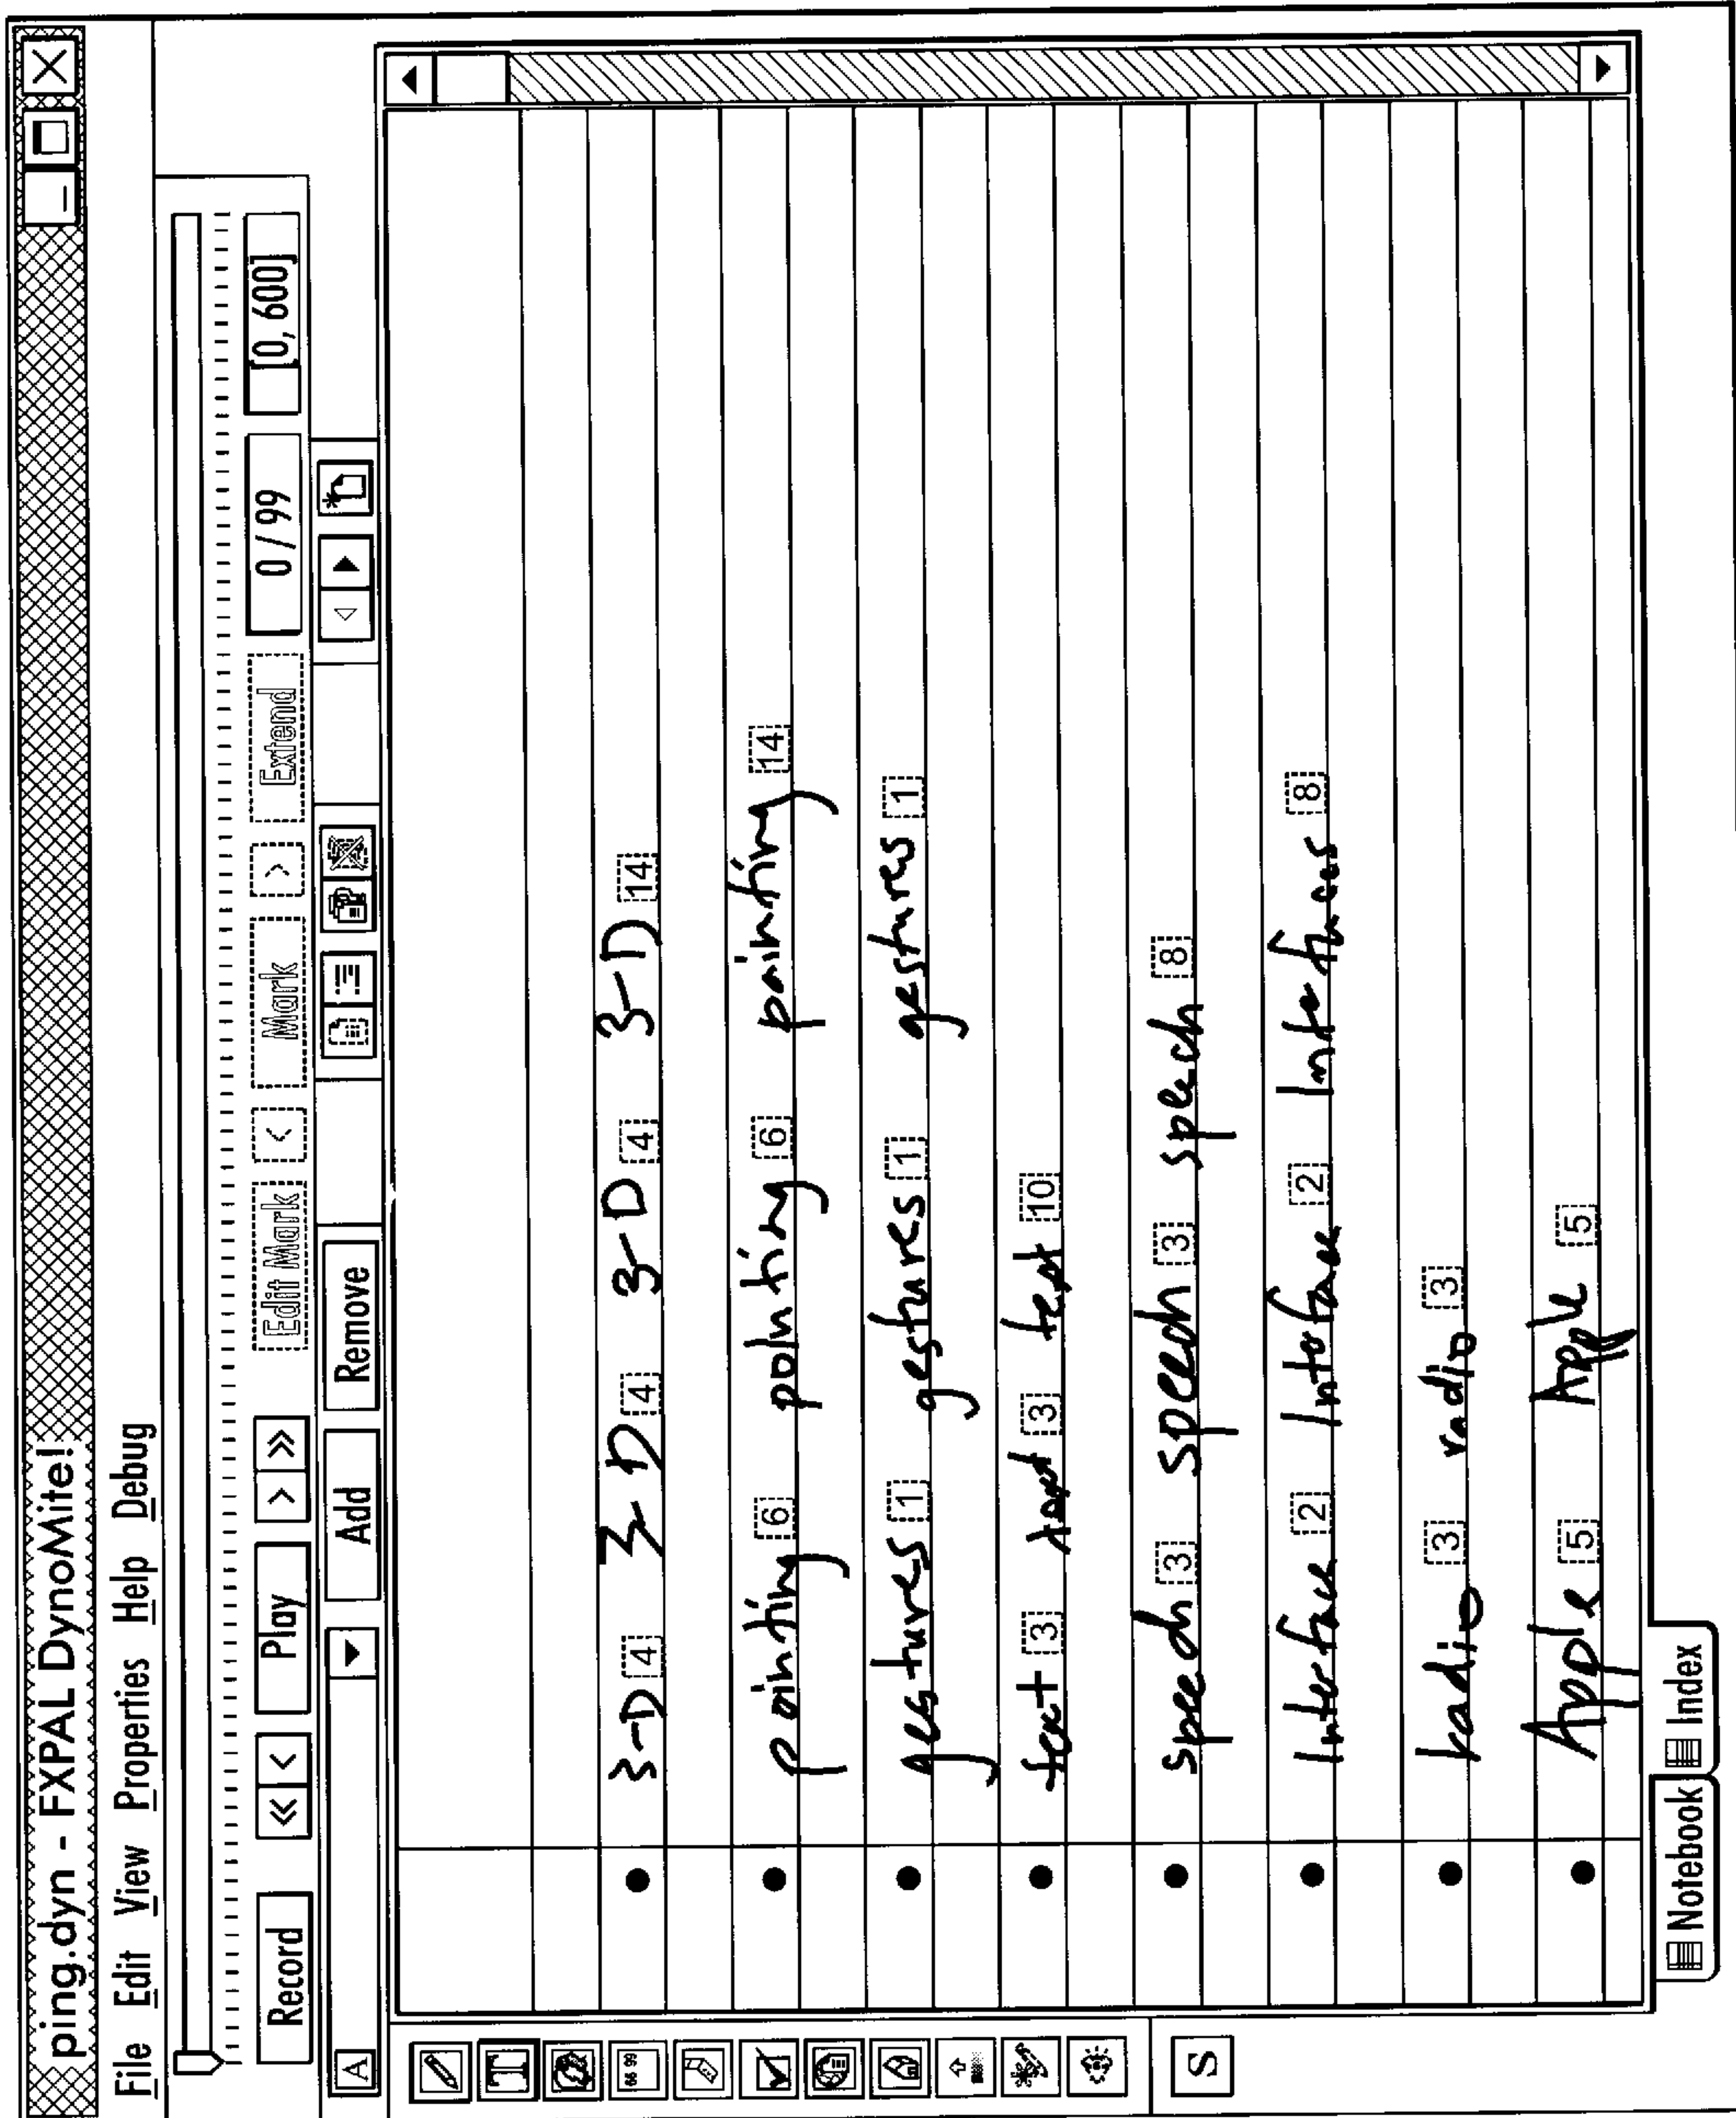 ping.dyn - FXPAL DynoMite!
File Edit View Properties Help Debug
Record << < Play > >> Edit Mark < Mark > Extend 0 / 99 [0, 600]
A Add Remove
T
66 99
S
3-D 4 3-D 4 3-D 4 3-D 14
pointing 6 pointing 6 painting 14
gestures 1 gestures 1 gestures 1
text 3 text 3 test 10
speech 3 speech 3 speech 8
Interface 2 Interface 2 Interfaces 8
radio 3 radio 3
Apple 5 Apple 5
Notebook Index